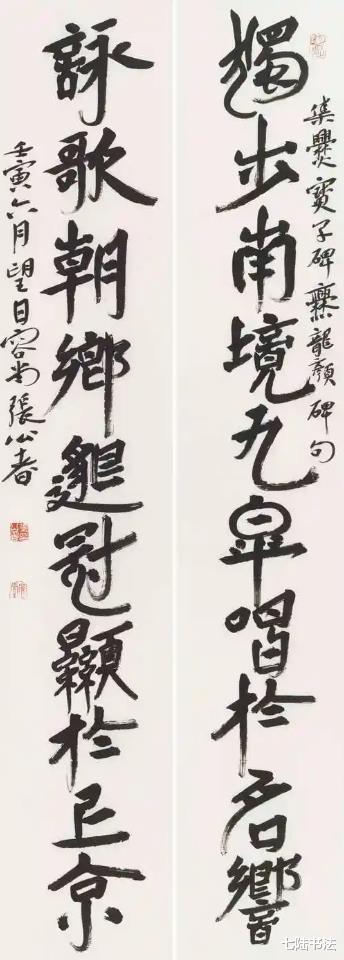 集爨寶子碑爨龍顏碑句
獨步南境九皋唱於名響
詠歌朝鄉邈冠顯於上京
壬寅六月望日張公者
七陆书法